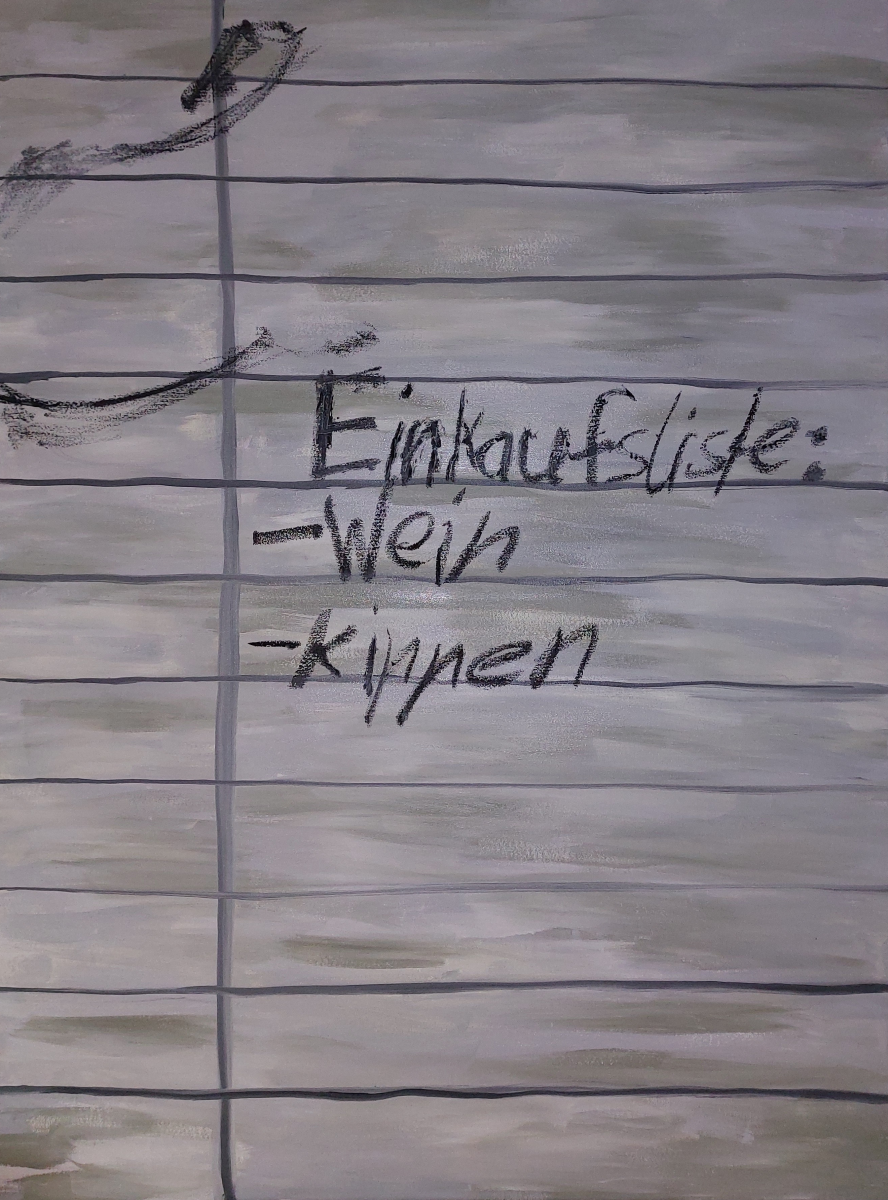 Einkaufsliste:
-Wein
-kippen